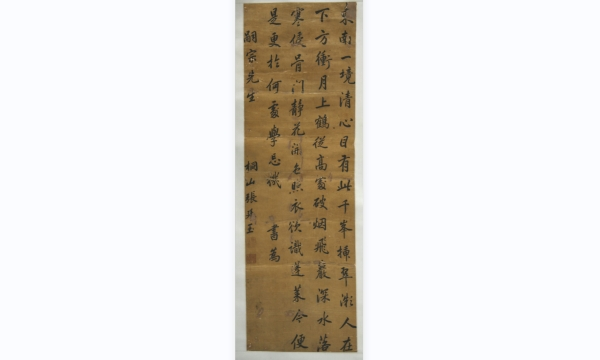 東南一境清心目有此千峯插翠微人在
下方衝月上鶴從高處破烟飛巖深水落
寒侵骨門靜花開色照衣欲識蓬萊今便
是更於何處學忘機 書為
嗣宗先生 桐山張廷玉